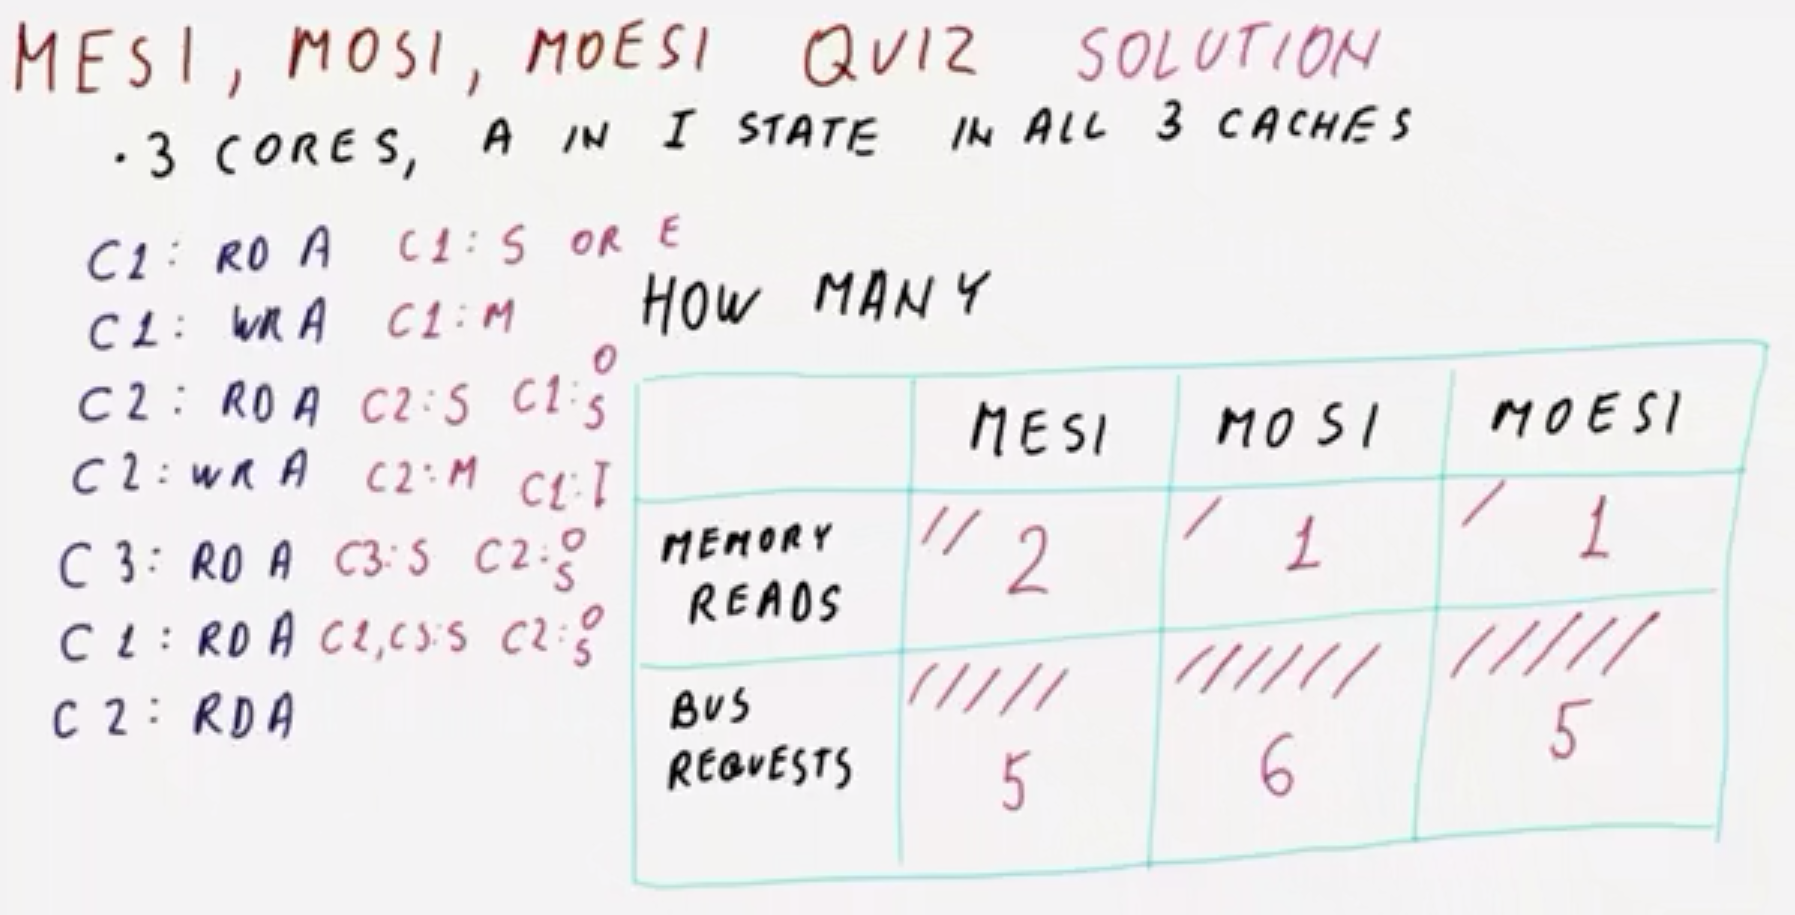 MESI, MOSI, MOESI QUIZ SOLUTION
• 3 CORES, A IN I STATE IN ALL 3 CACHES
C1: RD A C1: S OR E
C1: WR A C1: M
C2: RD A C2: S C1: O S
C2: WR A C2: M C1: I
C3: RD A C3: S C2: O S
C1: RD A C1, C3: S C2: O S
C2: RD A
HOW MANY
MESI MOSI MOESI
MEMORY READS // 2 / 1 / 1
BUS REQUESTS ///// 5 ////// 6 ///// 5